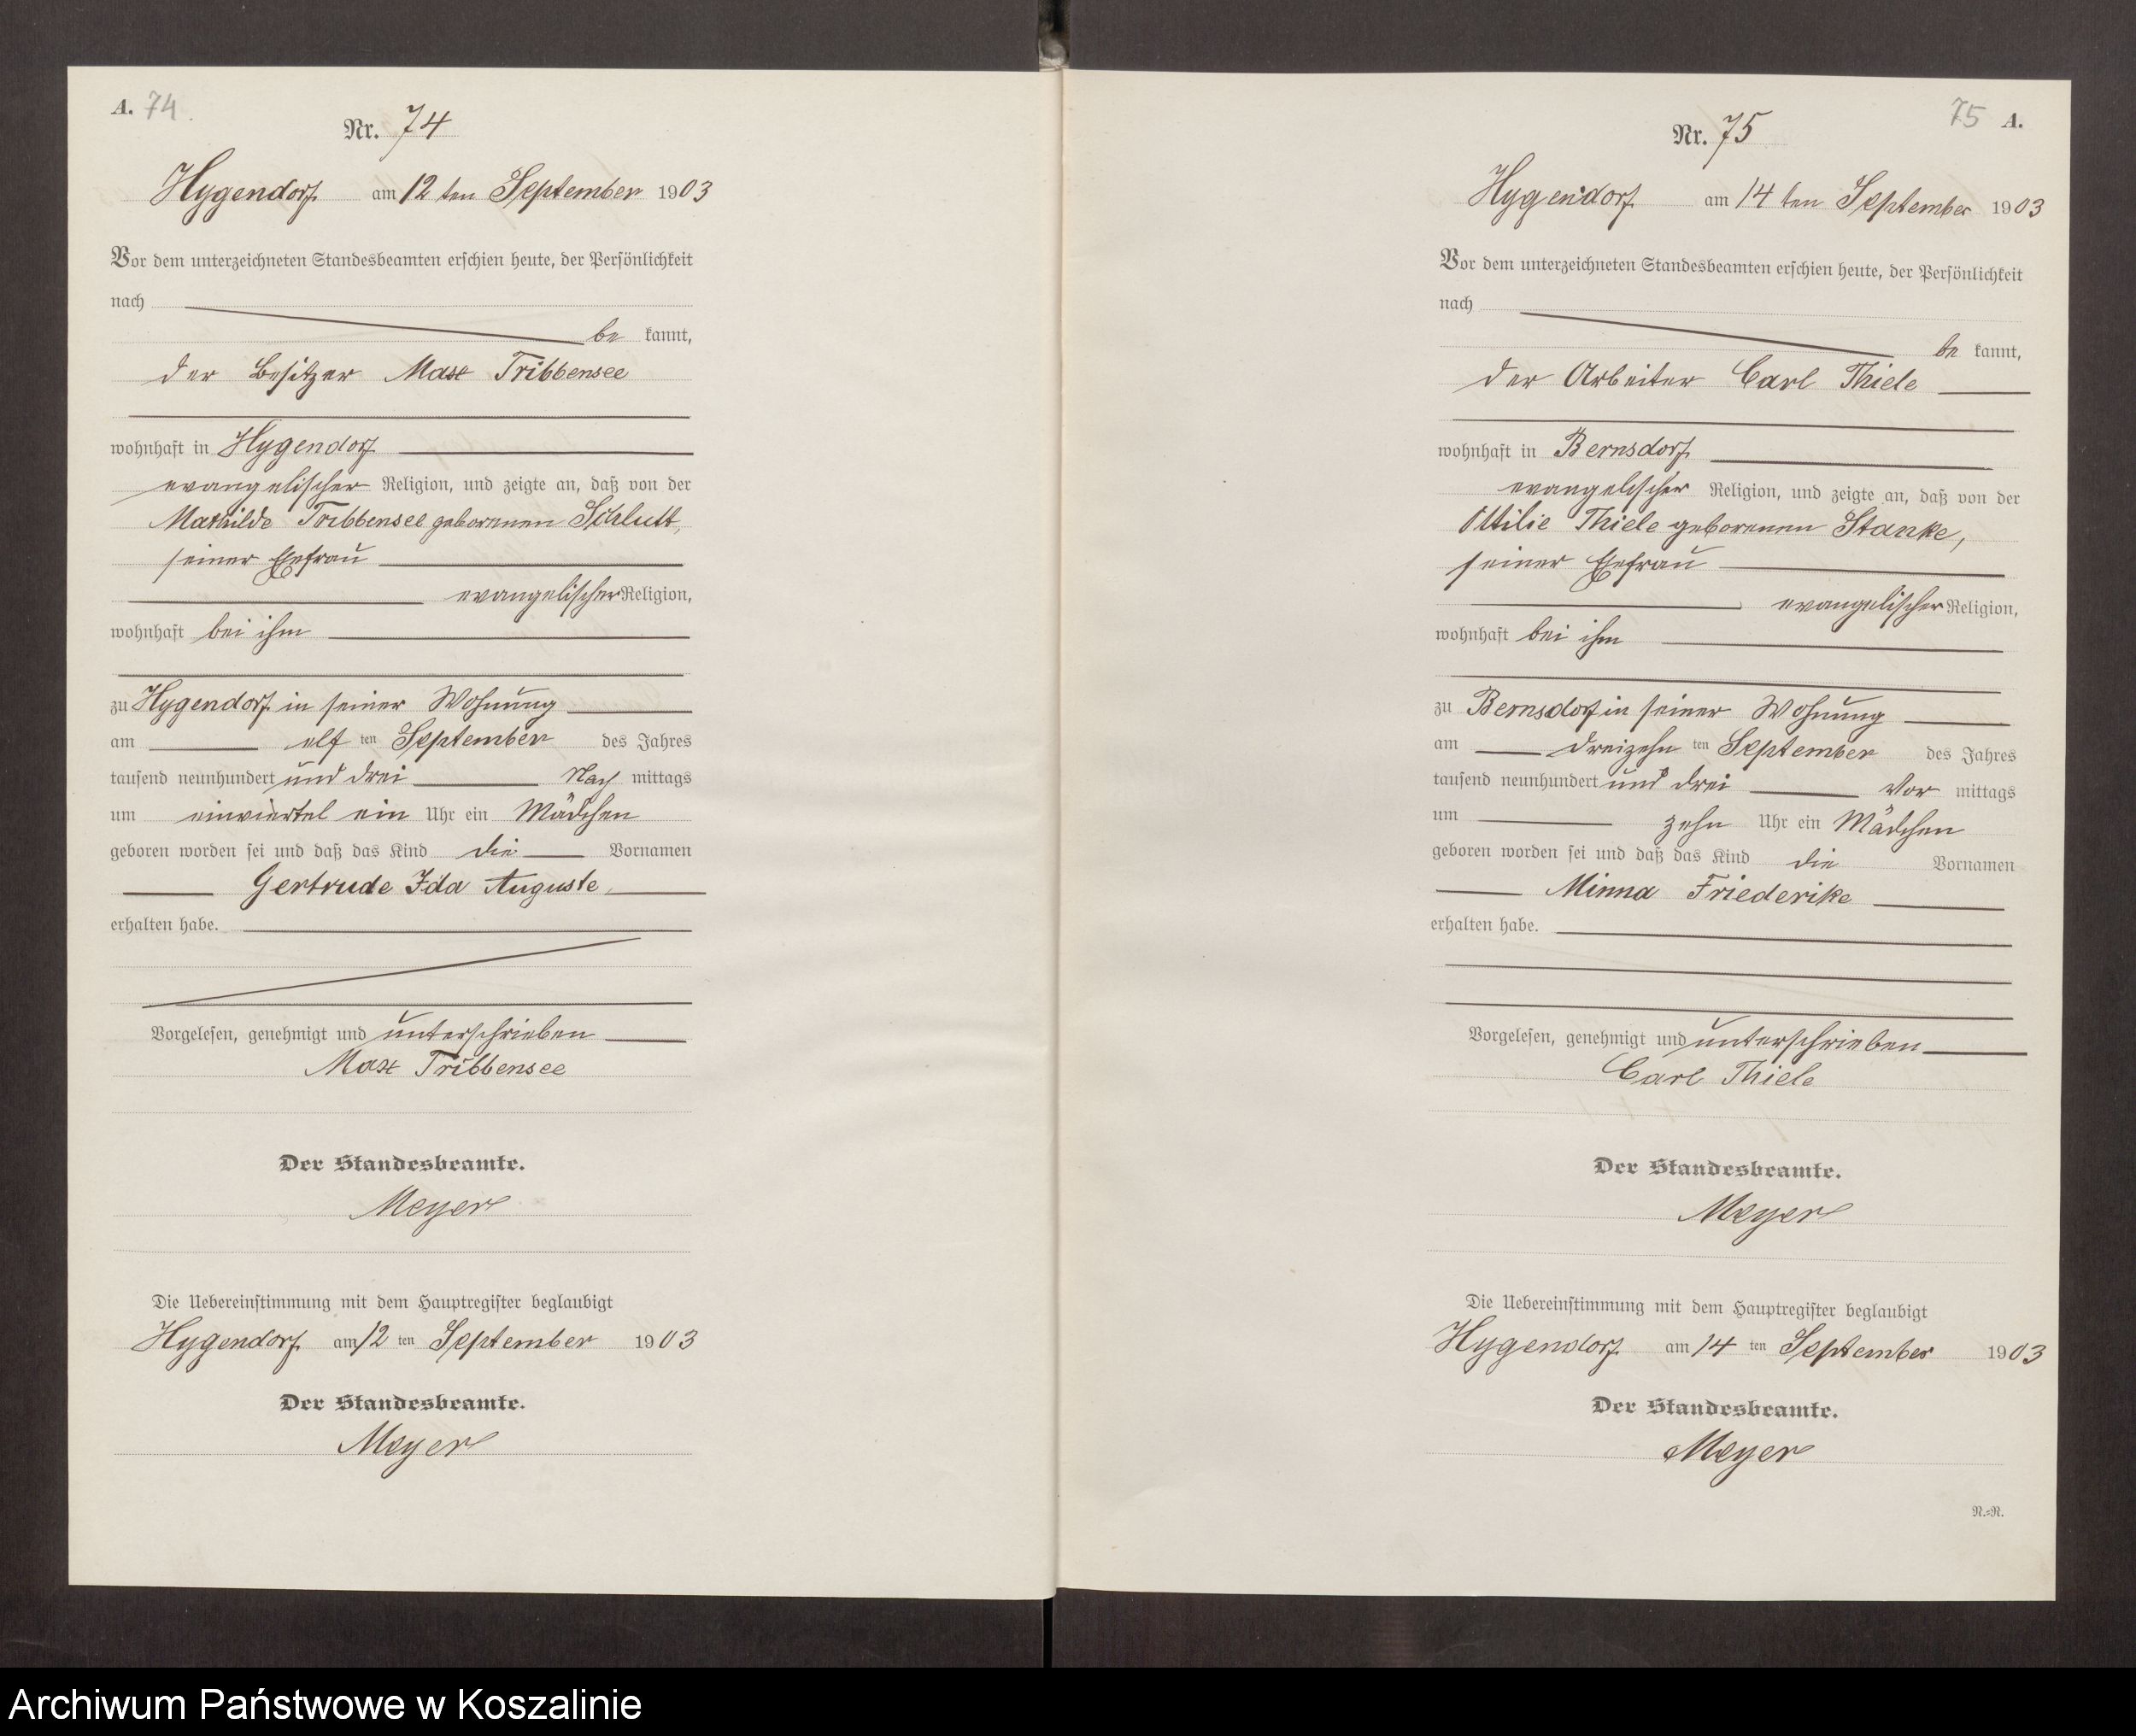 A. 74
Nr. 74
Hygendorf am 12 ten September 1903
Vor dem unterzeichneten Standesbeamten erschien heute, der Persönlichkeit
nach
be kannt,
der Besitzer Max Tribbensee
wohnhaft in Hygendorf
evangelischer Religion, und zeigte an, daß von der
Mathilde Tribbensee geborenen Schlutt,
seiner Ehefrau
evangelischer Religion,
wohnhaft bei ihm
zu Hygendorf in seiner Wohnung
am elf ten September des Jahres
tausend neunhundert und drei Nach mittags
um einviertel ein Uhr ein Mädchen
geboren worden sei und daß das Kind die Vornamen
Gertrude Ida Auguste
erhalten habe.
Vorgelesen, genehmigt und unterschrieben
Max Tribbensee
Der Standesbeamte.
Meyer
Die Uebereinstimmung mit dem Hauptregister beglaubigt
Hygendorf am 12 ten September 1903
Der Standesbeamte.
Meyer
75 A.
Nr. 75
Hygendorf am 14 ten September 1903
Vor dem unterzeichneten Standesbeamten erschien heute, der Persönlichkeit
nach
be kannt,
der Arbeiter Carl Thiele
wohnhaft in Bernsdorf
evangelischer Religion, und zeigte an, daß von der
Ottilie Thiele geborenen Stanke,
seiner Ehefrau
evangelischer Religion,
wohnhaft bei ihm
zu Bernsdorf in seiner Wohnung
am dreizehn ten September des Jahres
tausend neunhundert und drei Vor mittags
um zehn Uhr ein Mädchen
geboren worden sei und daß das Kind die Vornamen
Minna Friederike
erhalten habe.
Vorgelesen, genehmigt und unterschrieben
Carl Thiele
Der Standesbeamte.
Meyer
Die Uebereinstimmung mit dem Hauptregister beglaubigt
Hygendorf am 14 ten September 1903
Der Standesbeamte.
Meyer
N.=N.
Archiwum Państwowe w Koszalinie